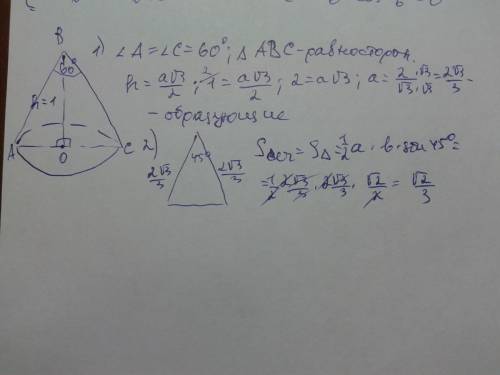 B
1) ∠A=∠C=60°; △ABC-равносторон.
60°
h=1
h=a√3/2; 1=a√3/2; 2=a√3; a=2·√3/√3·√3=2√3/3-
- образующие
A O C
2) 45°
2√3/3 2√3/3
Sсеч=S△=1/2 a·b·sin 45°=
=1/2·2√3/3·2√3/3·√2/2=√2/3